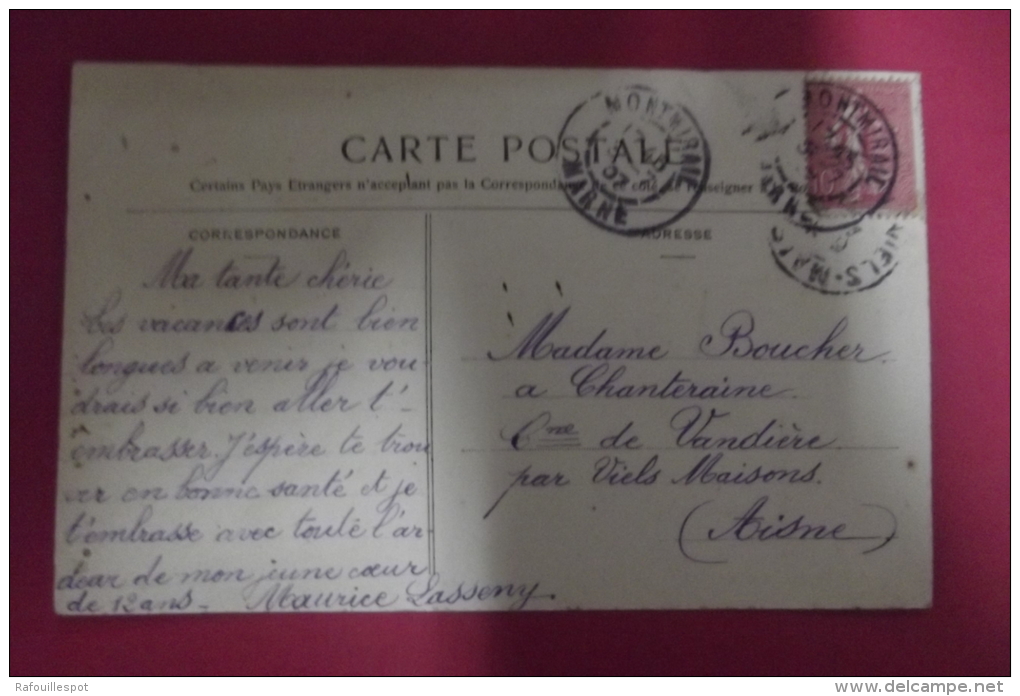 CARTE POSTALE
Certains Pays Etrangers n'acceptant pas la Correspondance de ce côté se renseigner
CORRESPONDANCE
Ma tante chérie
Les vacances sont bien
longues a venir je vou-
drais si bien aller t'-
embrasser. J'espère te trou
ver en bonne santé et je
t'embrasse avec toute l'ar-
deur de mon jeune cœur
de 12 ans - Maurice Lasseny.
ADRESSE
Madame Boucher.
a Chanteraine.
Cne de Vandière.
par Viels Maisons.
(Aisne)
MONTMIRAIL
MARNE
MONTMIRAIL
MARNE
VIELS-MAISONS
10
Rafouillespot
www.delcampe.net